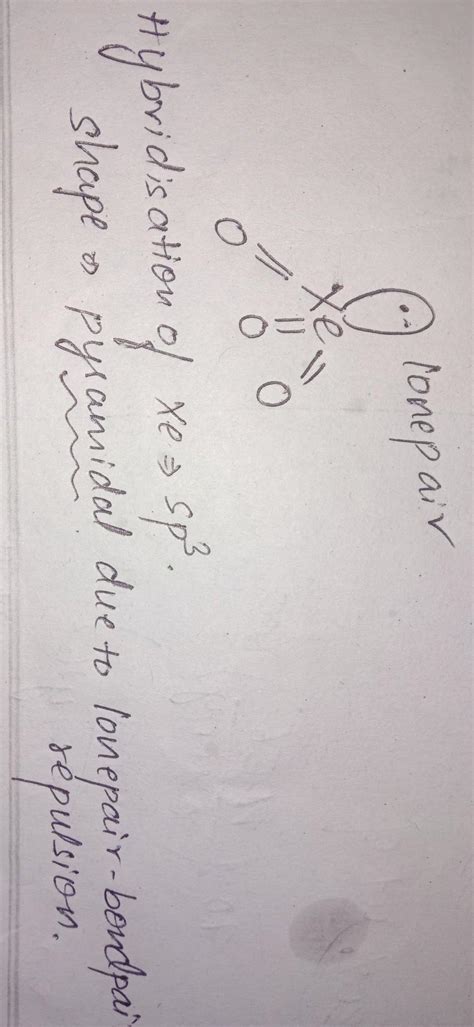 lonepair
Xe
O O O
Hybridisation of Xe ⇒ sp³.
shape ⇒ pyramidal due to lonepair-bondpai
repulsion.